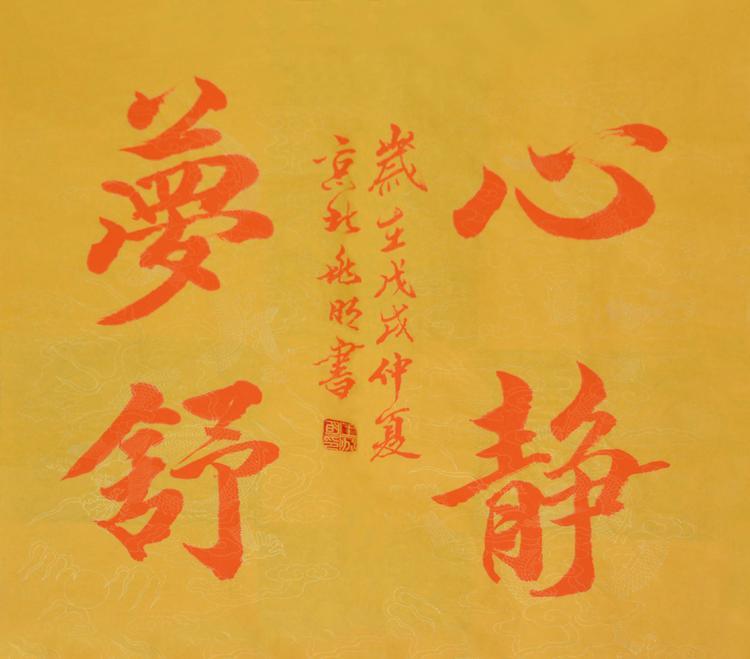 心静
夢舒
歲在戊戌仲夏
京北明書